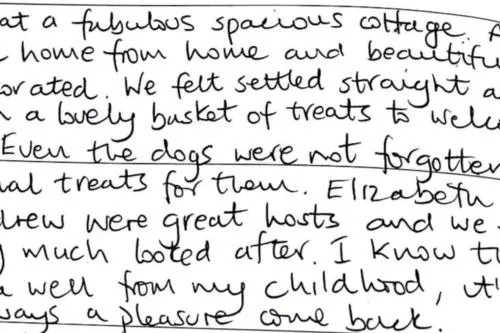 at a fabulous spacious cottage. A
home from home and beautifu
orated. We felt settled straight a
a lovely basket of treats to welc
Even the dogs were not forgotten
al treats for them. Elizabeth
drew were great hosts and we
much looked after. I know t
a well from my childhood, it'
ways a pleasure come back.